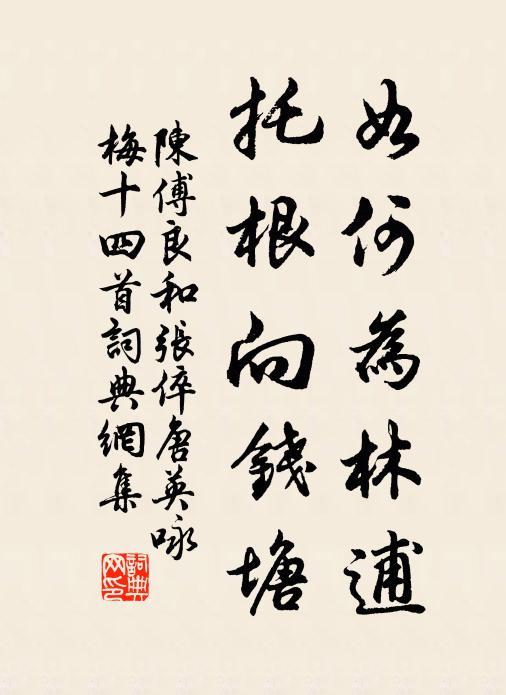 如何為林逋
托根向錢塘
陳傅良和張倅唐英咏
梅十四首詞典網集
詞典
网印